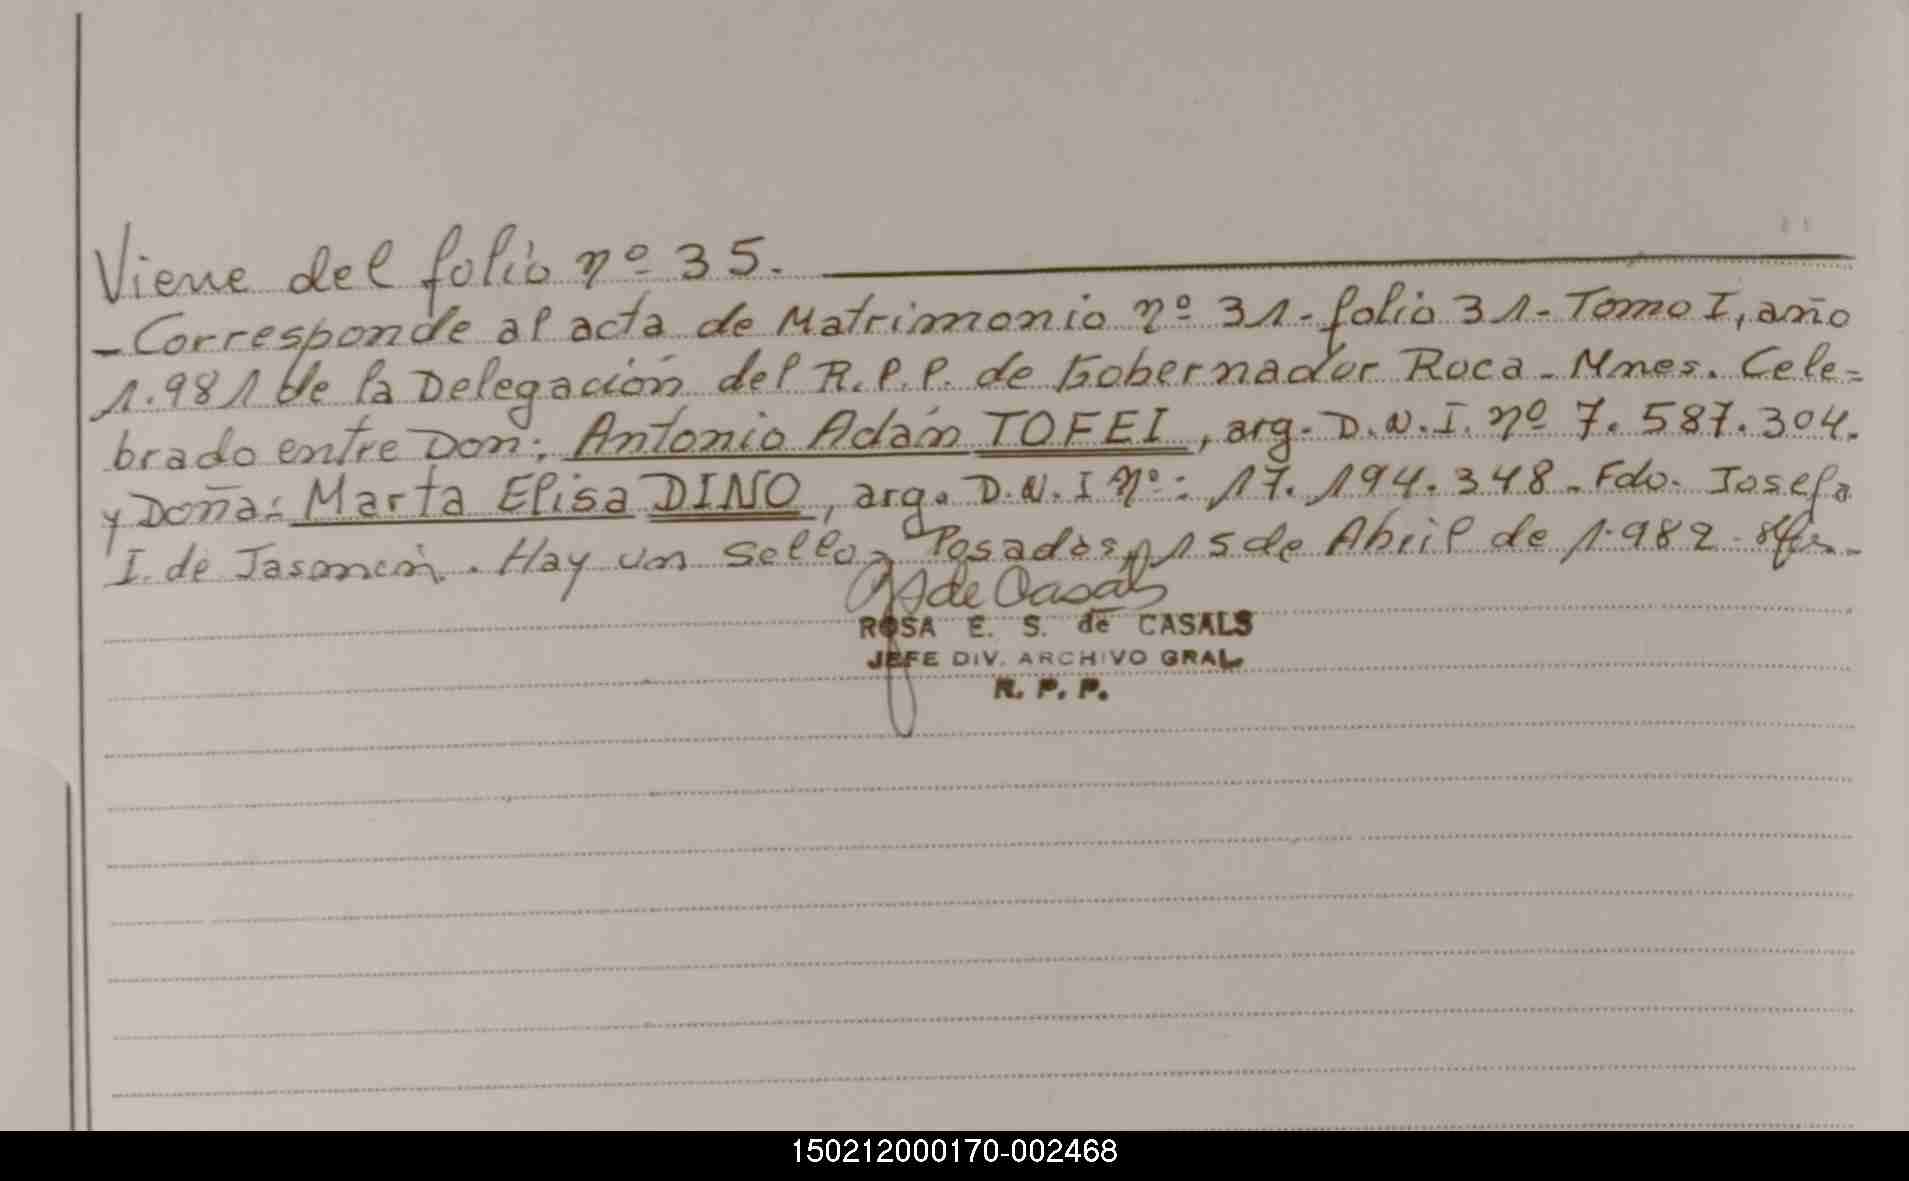 Viene del folio nº 35.
- Corresponde al acta de Matrimonio nº 31 - folio 31 - Tomo I, año
1.981 de la Delegación del R.P.P. de Gobernador Roca - Mnes. Cele=
brado entre Don: Antonio Adán TOFEI, arg. D.N.I. nº 7.587.304.
y Doña: Marta Elisa DINO, arg. D.N.I nº: 17.194.348 - Fdo. Josefa
I. de . Hay un sello - Posadas, 15 de Abril de 1.982 -
de Casals
ROSA E. S. de CASALS
JEFE DIV. ARCHIVO GRAL
R. P. P.
150212000170-002468